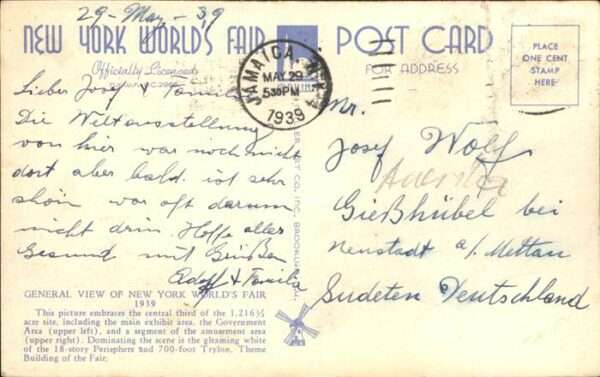 29 - May - 39
NEW YORK WORLD'S FAIR
POST CARD
Officially Licensed
FOR ADDRESS
PLACE
ONE CENT
STAMP
HERE
JAMAICA, N.Y.
MAY 29
5 30 PM
1939
Lieber Josef & Familie
Die Weltausstellung
von hier war noch nicht
dort aber bald. ist sehr
schön war oft darum
nicht drin. Hoffe alles
Gesund mit Grüßen
Adolf & Familie
Mr.
Josef Wolf
Amerika
Gießhübel bei
Neustadt a/. Mettau
Sudeten Deutschland
CO., INC., BROOKLYN
GENERAL VIEW OF NEW YORK WORLD'S FAIR
1939
This picture embraces the central third of the 1,216½
acre site, including the main exhibit area, the Government
Area (upper left), and a segment of the amusement area
(upper right). Dominating the scene is the gleaming white
of the 18-story Perisphere and 700-foot Trylon, Theme
Building of the Fair.